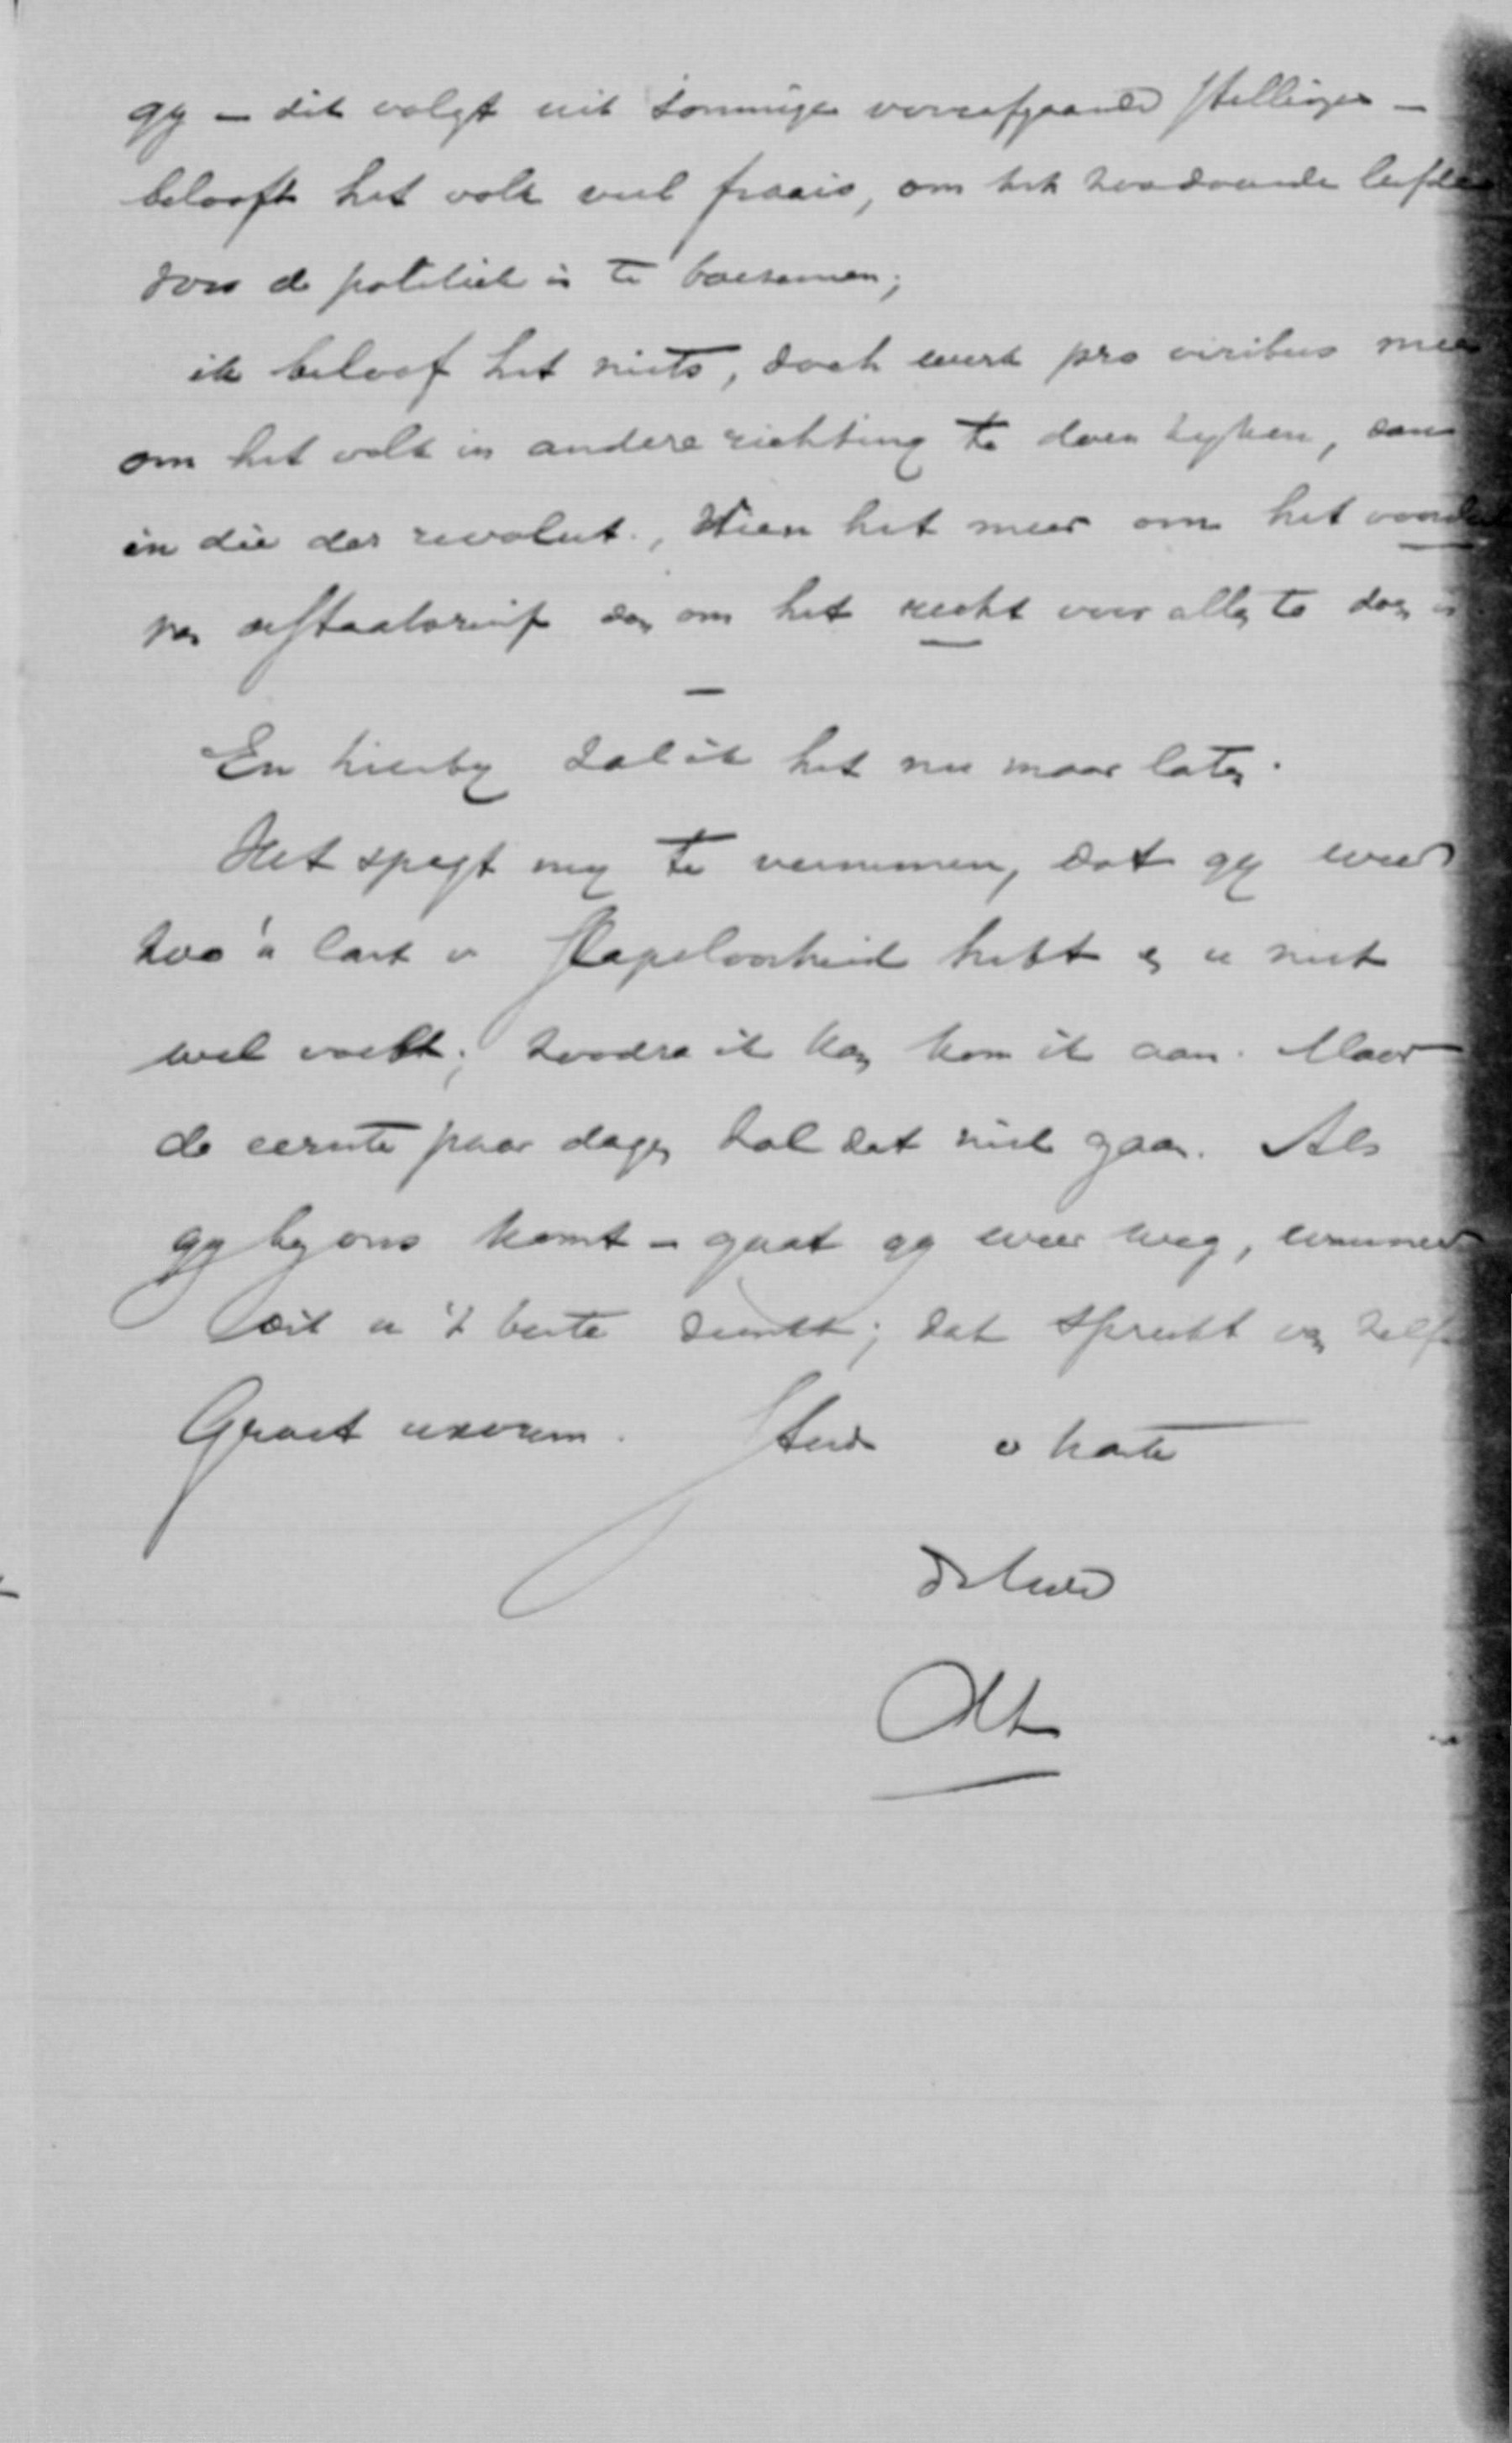 gy – dit volgt uit sommige voorafgaande stellingen –
belooft het volk veel fraais, om het zoodoende liefde
voor de politiek in te boezemen;
ik beloof het niets, doch werk pro viribus mee
om het volk in andere richting te doen kyken, dan
in die der revolut., Wien het meer om het
dan om het recht voor allen te doen is
–
En hierby zal ik het nu maar laten.
Het spyt my te vernemen, dat gy weer
zoo'n last v slapeloosheid hebt en u niet
wel voelt; zoodra ik kan kom ik aan. Maar
de eerste paar dagen zal dat niet gaan. Als
gy by ons komt – gaat gy weer weg, wanneer
dit u 't beste dunkt; dat spreekt van zelf
Groet uxorem. Steeds v harte